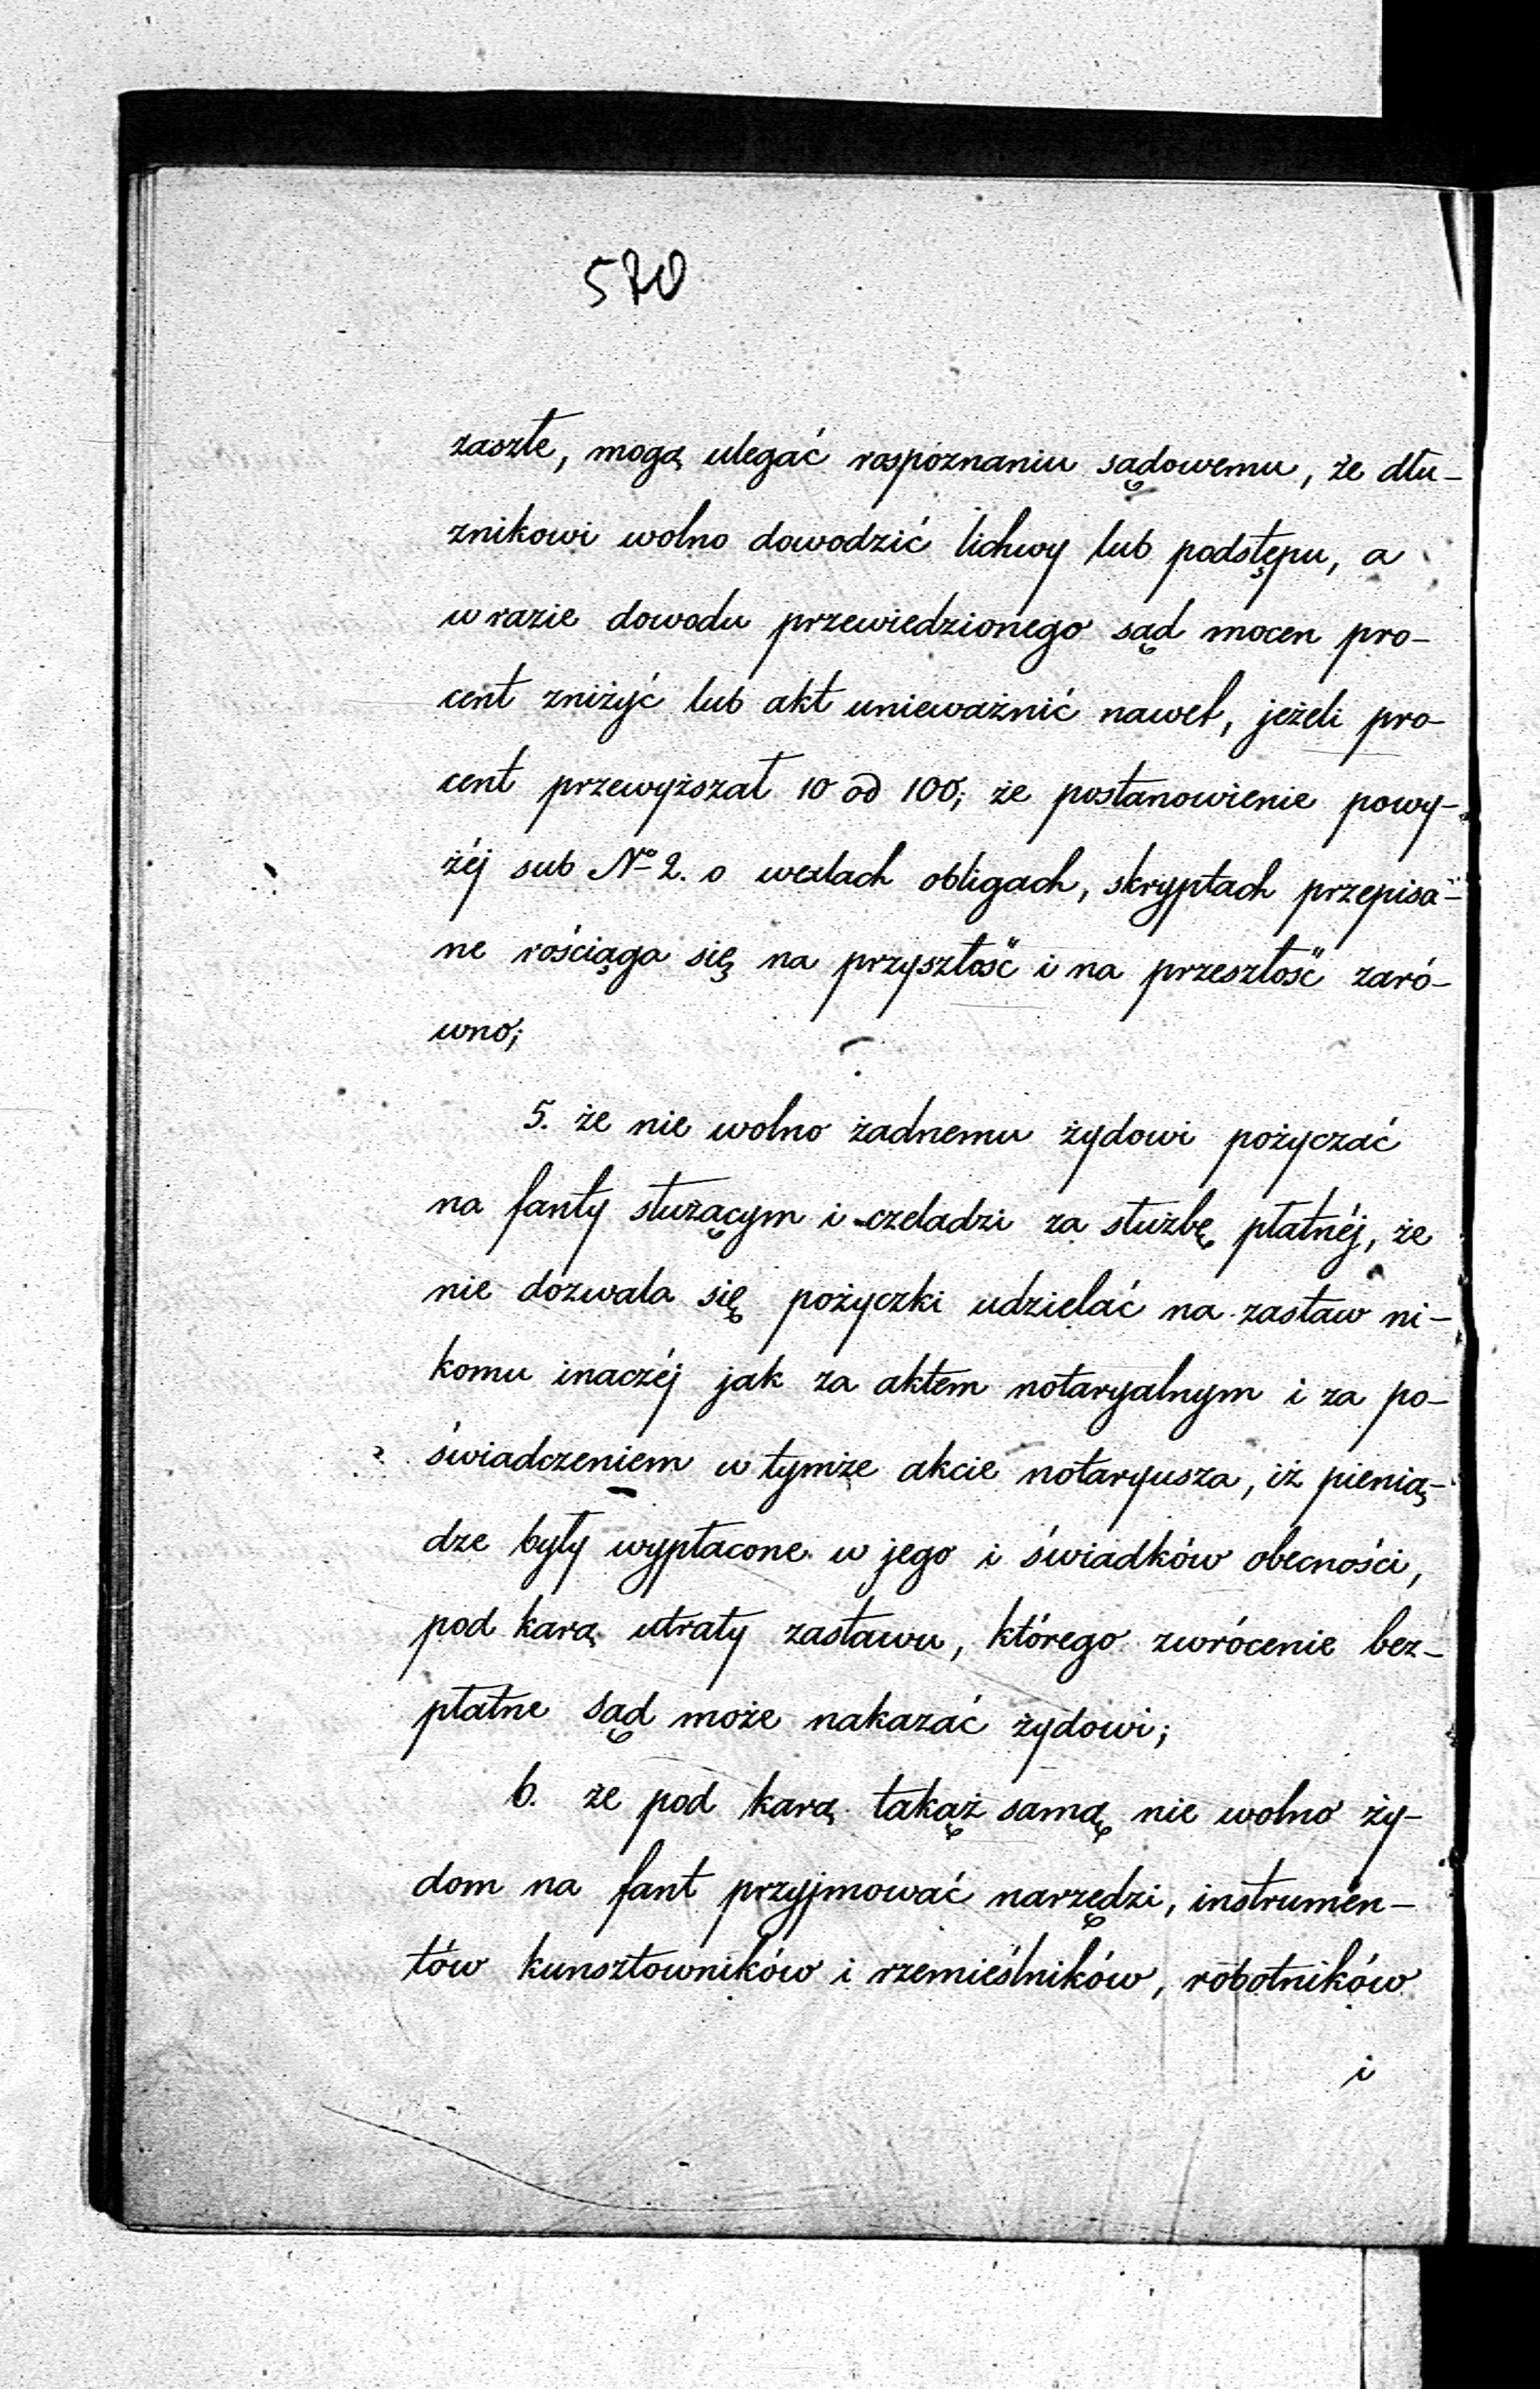 570
zaszłe, mogą ulegać rozpoznaniu sądowemu, że dłu-
żnikowi wolno dowodzić lichwy lub podstępu, a
w razie dowodu przewiedzionego sąd mocen pro-
cent zniżyć lub akt unieważnić nawet, jeżeli pro-
cent przewyższał 10 od 100; że postanowienie powy-
żéj sub No 2. o wexlach obligach, skryptach przepisa-
ne rościąga się na przyszłość i na przeszłość zaró-
wno;
5. że nie wolno żadnemu żydowi pożyczać
na fanty służącym i czeladzi za służbę płatnéj, że
nie dozwala się pożyczki udzielać na zastaw ni-
komu inaczéj jak za aktem notaryalnym i za po-
świadczeniem w tymże akcie notaryusza, iż pienią-
dze były wypłacone w jego i świadków obecności,
pod karą utraty zastawu, którego zwrócenie bez-
płatne sąd może nakazać żydowi;
6. że pod karą takąż samą nie wolno ży-
dom na fant przyjmować narzędzi, instrumen-
tów kunsztowników i rzemieślników, robotników
i